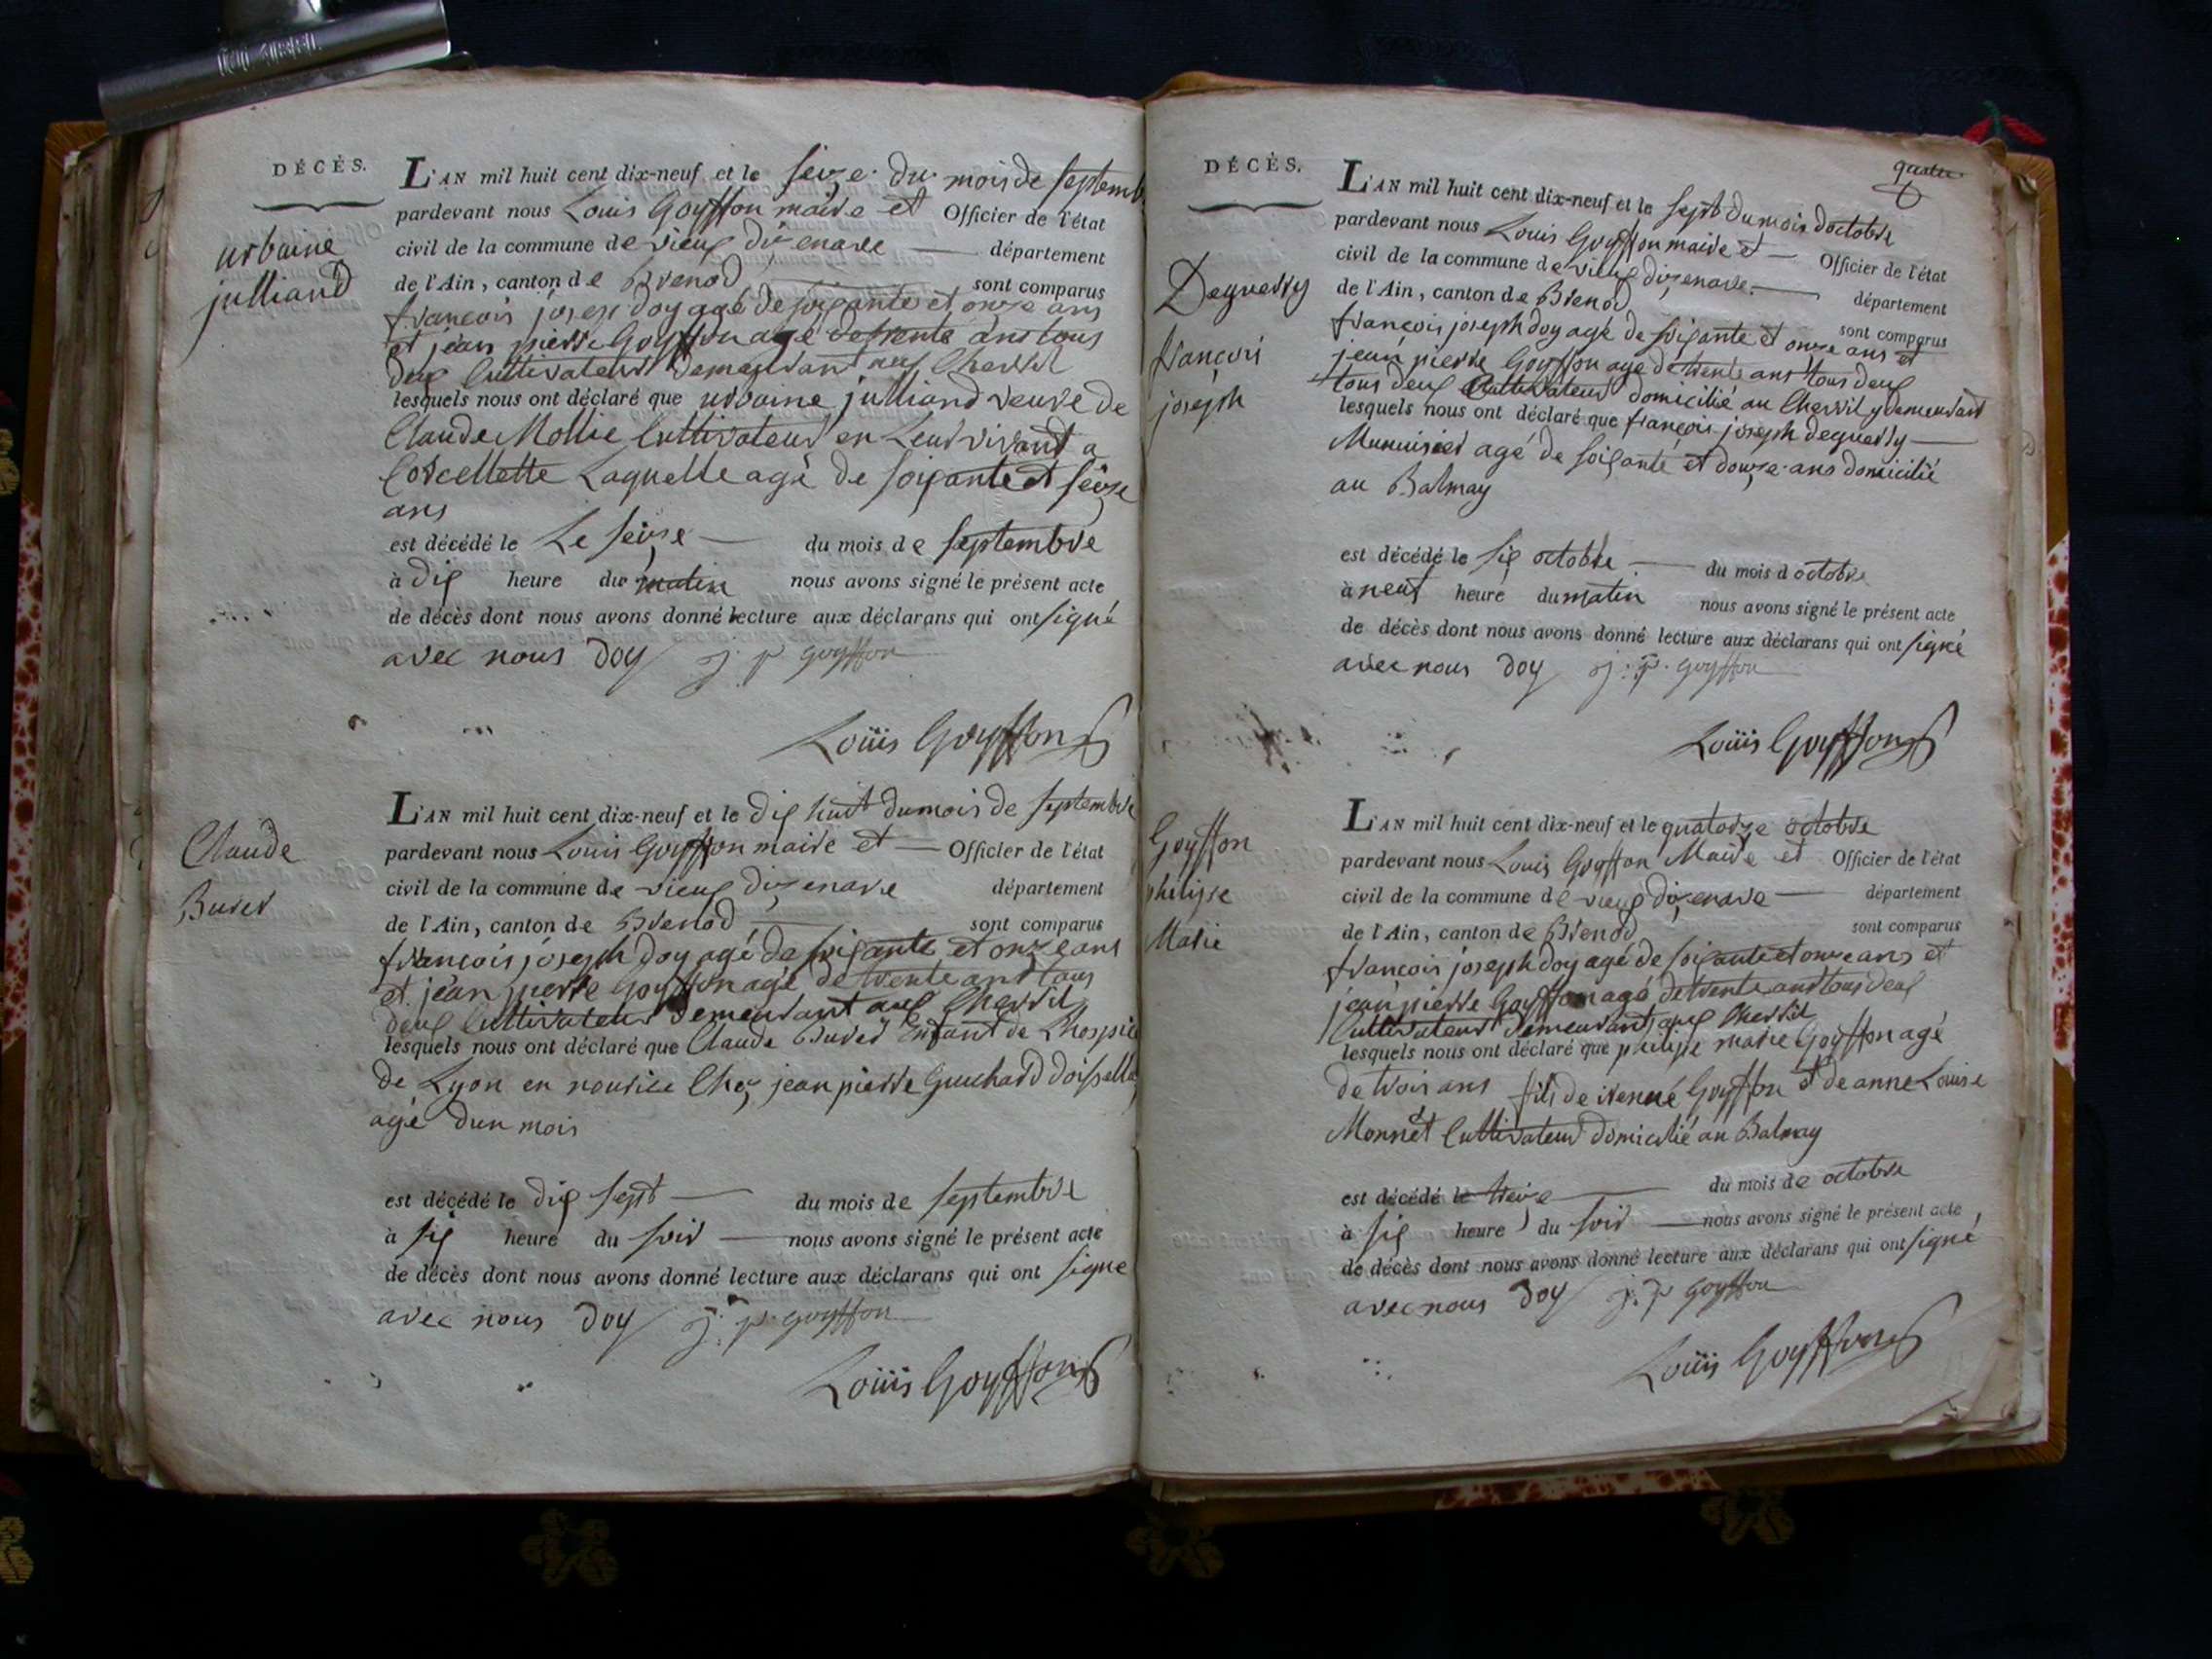 DÉCÈS.
urbaine
julliand
L'AN mil huit cent dix-neuf et le seize du mois de septemb
pardevant nous Louis Goyffon maire et Officier de l'état
civil de la commune de vieux dizenave département
de l'Ain, canton de Brenod sont comparus
françois joseph doy agé de soixante et onze ans
et jean pierre Goyffon agé de trente ans tous
deux Cultivateur demeurant aux Chevril
lesquels nous ont déclaré que urbaine julliand veuve de
Claude Mollie Cultivateur en Leur vivant a
Corcellette Laquelle agé de soixante et seize
ans
est décédé le Le seize du mois de septembre
à dix heure du matin nous avons signé le présent acte
de décès dont nous avons donné lecture aux déclarans qui ont signé
avec nous doy j. p goyffon
Loüis Goyffon
Claude
Burer
L'AN mil huit cent dix-neuf et le dix huit du mois de septembre
pardevant nous Louis Goyffon maire et Officier de l'état
civil de la commune de vieux dizenave département
de l'Ain, canton de Brenod sont comparus
françois joseph doy agé de soixante et onze ans
et jean pierre Goyffon agé de trente ans tous
deux Cultivateur demeurant aux Chevril
lesquels nous ont déclaré que Claude Burer enfant de Lhospice
de Lyon en nourice Chez jean pierre Guichard doisella
agé dun mois
est décédé le dix sept du mois de septembre
à six heure du soir nous avons signé le présent acte
de décès dont nous avons donné lecture aux déclarans qui ont signe
avec nous doy j. p. goyffon
Loüis Goyffon
DÉCÈS.
quatre
Deguerry
françois
joseph
L'AN mil huit cent dix-neuf et le sept du mois doctobre
pardevant nous Louis Goyffon maire et Officier de l'état
civil de la commune de vieux dizenave département
de l'Ain, canton de Brenod sont comparus
françois joseph doy agé de soixante et onze ans et
jean pierre Goyffon agé de trente ans tous deux
tous deux Cultivateur domicilié au Chevril y demeurant
lesquels nous ont déclaré que françois joseph deguerry
Menuisier agé de soixante et douze ans domicilié
au Balmay
est décédé le six octobre du mois d octobre
à neuf heure du matin nous avons signé le présent acte
de décès dont nous avons donné lecture aux déclarans qui ont signé
avec nous doy j. p. goyffon
Loüis Goyffon
Goyffon
philippe
Marie
L'AN mil huit cent dix-neuf et le quatorze octobre
pardevant nous Louis Goyffon Maire et Officier de l'état
civil de la commune de vieux dizenave département
de l'Ain, canton de Brenod sont comparus
françois joseph doy agé de soixante et onze ans et
jean pierre Goyffon agé de trente ans tous deux
Cultivateur demeurant aux Chevril
lesquels nous ont déclaré que philippe marie Goyffon agé
de trois ans fils de Goyffon et de anne Louise
Monnet Cultivateur domicilié au Balmay
est décédé le treize du mois de octobre
à six heure du soir nous avons signé le présent acte
de décès dont nous avons donné lecture aux déclarans qui ont signé
avec nous doy j. p goyffon
Loüis Goyffon